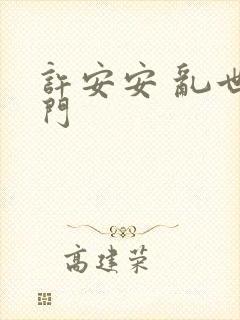 許安安 亂世
門
高建荣